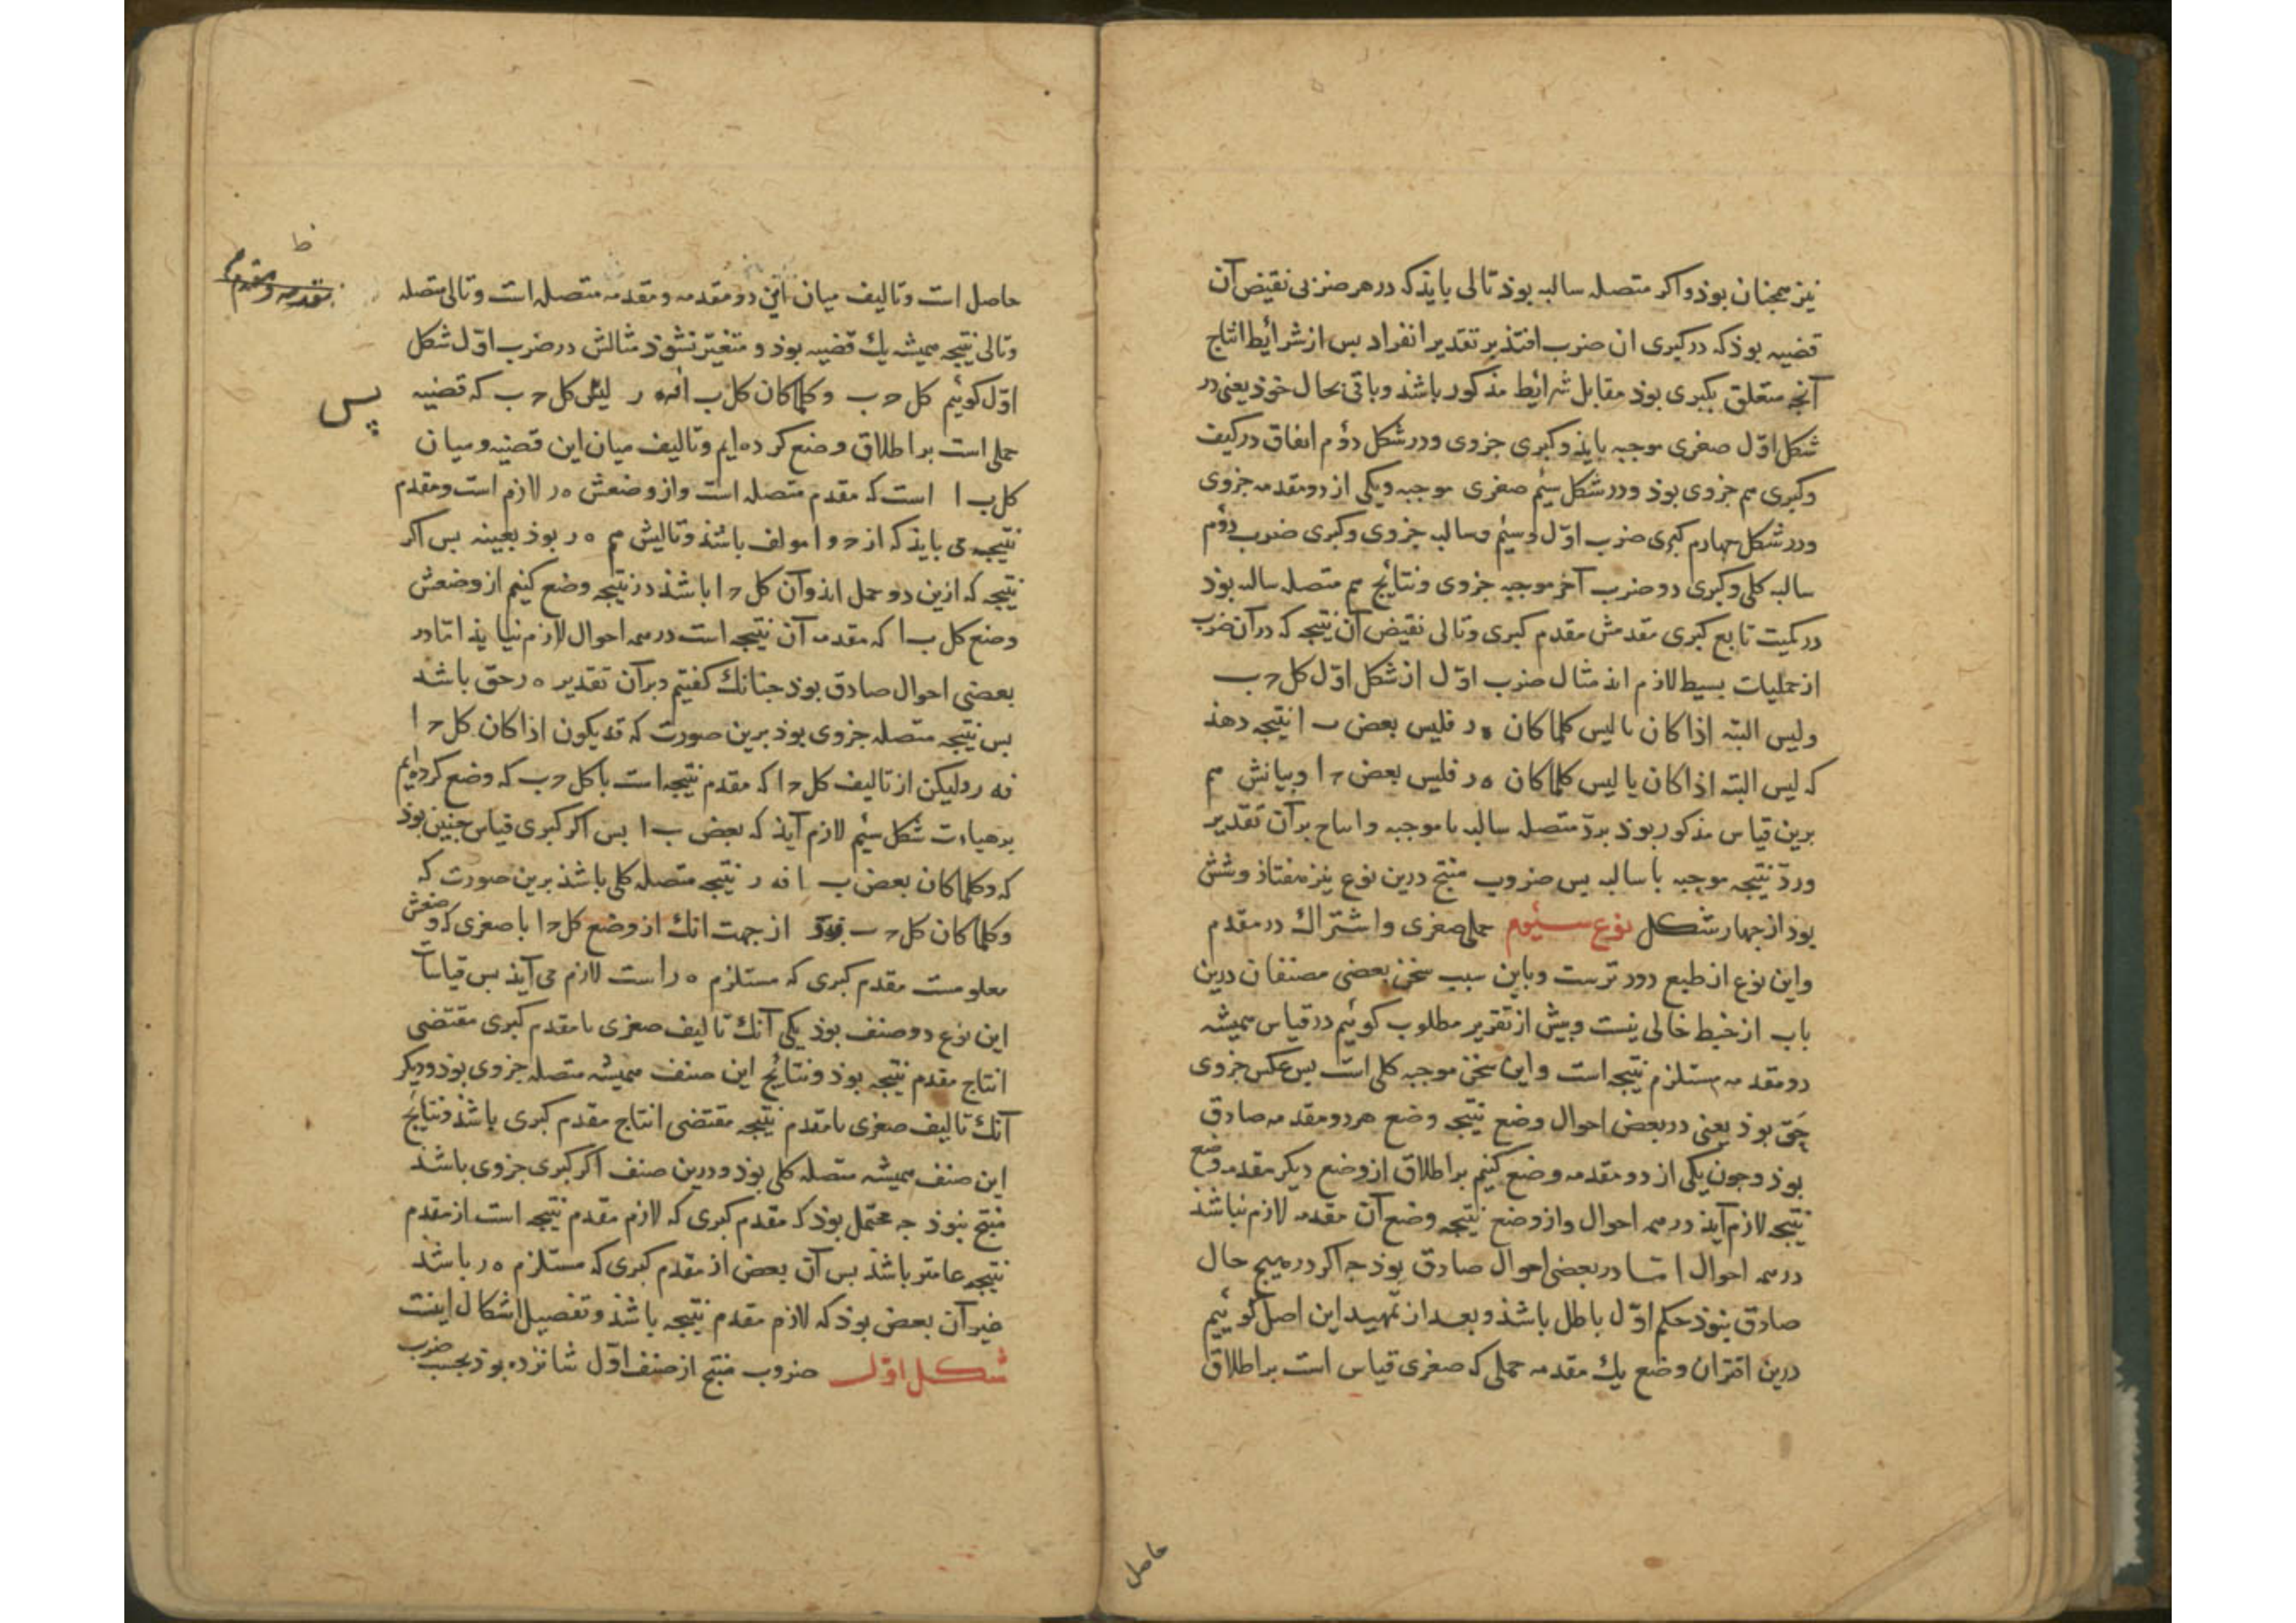 نیز همجنان بوذ و اکر متصله سالبه بوذ تالی بایذ که در هر ضربی نقیض آن
قضیه بوذ که در کبری ان ضرب افتذ بر تقدیر انفراد بس از شرایط انتاج
آنجه متعلق بکبری بوذ مقابل شرایط مذکور باشذ و باقی بحال خوذ یعنی در
شکل اوّل صغری موجبه بایذ و کبری جزوی و در شکل دوُم اتفاق در کیف
و کبری هم جزوی بوذ و در شکل سیُم صغری موجبه و یکی از دو مقدمه جزوی
و در شکل جهارم کبری ضرب اوّل و سیُم سالبه جزوی و کبری ضرب دوُم
سالبه کلی و کبری دو ضرب آخر موجبه جزوی و نتایج هم متصله سالبه بوذ
در کمیت تابع کبری مقدمش مقدم کبری و تالی نقیض آن نتیجه که در آن ضرب
از حملیات بسیط لازم اذ مثال ضرب اوّل از شکل اوّل کل حـ ب
و لیس البته اذا کان یا لیس کلما کان ه ر فلیس بعض ب ا نتیجه دهذ
که لیس البته اذا کان یا لیس کلما کان ه ر فلیس بعض حـ ا و بیانش هم
برین قیاس مذکور بوذ بردّ متصله سالبه با موجبه و انتاج بر آن تقدیر
و ردّ نتیجه موجبه با سالبه بس ضروب منتج درین نوع نیز هفتاذ و شش
بوذ از جهار شکل نوع سیُوم حملی صغری و اشتراک در مقدم
و این نوع از طبع دورترست و باین سبب سخن بعضی مصنفان درین
باب از خبط خالی نیست و بیش از تقریر مطلوب کوئیم در قیاس همیشه
دو مقدمه مستلزم نتیجه است و این سخن موجبه کلی است بس عکس جزوی
حق بوذ یعنی در بعض احوال وضع نتیجه وضع هر دو مقدمه صادق
بوذ و جون یکی از دو مقدمه وضع کنیم بر اطلاق از وضع دیکر مقدمه وضع
نتیجه لازم آیذ در همه احوال و از وضع نتیجه وضع آن مقدمه لازم نباشذ
در همه احوال امّا در بعضی احوال صادق بوذ جه اکر در هیج حال
صادق نبوذ حکم اوّل باطل باشذ و بعد از تمهید این اصل کوئیم
درین اقتران وضع یک مقدمه حملی که صغری قیاس است بر اطلاق
حاصل
حاصل است و تالیف میان این دو مقدمه و مقدمه متصله است و تالی متصله
و تالی نتیجه همیشه یک قضیه بوذ و متغیّر نشوذ مثالش در ضرب اوّل شکل
اوّل کوئیم کل حـ ب و کلما کان کل ب ا فه ر کل حـ ب که قضیه
بس
حملی است بر اطلاق وضع کرده ایم و تالیف میان این قضیه و میان
کل ب ا است که مقدم متصله است و از وضعش ه ر لازم است و مقدم
نتیجه می بایذ که از حـ و ا مولف باشذ و تالیش هم ه ر بوذ بعینه بس اکر
نتیجه که ازین دو حمل اذ و آن کل حـ ا باشذ در نتیجه وضع کنیم از وضعش
وضع کل ب ا که مقدمه آن نتیجه است در همه احوال لازم نیایذ امّا در
بعضی احوال صادق بوذ جنانک کفتیم و بر آن تقدیر ه ر حق باشذ
بس نتیجه متصله جزوی بوذ برین صورت که قد یکون اذا کان کل حـ ا
فه ر و لیکن از تالیف کل حـ ا که مقدم نتیجه است با کل حـ ب که وضع کرده ایم
بر هیات شکل سیُم لازم آیذ که بعض ب ا بس اکر کبری قیاس جنین بوذ
که و کلما کان بعض ب ا فه ر نتیجه متصله کلی باشذ برین صورت که
و کلما کان کل حـ از جهت انک از وضع کل حـ ا با صغری که وضعش
معلومست مقدم کبری که مستلزم ه ر است لازم می آیذ بس قیاسات
این نوع دو صنف بوذ یکی آنک تالیف صغری با مقدم کبری مقتضی
انتاج مقدم نتیجه بوذ و نتایج این صنف همیشه متصله جزوی بوذ و دیکر
آنک تالیف صغری با مقدم نتیجه مقتضی انتاج مقدم کبری باشذ و نتایج
این صنف همیشه متصله کلی بوذ و درین صنف اکر کبری جزوی باشذ
منتج نبوذ جه محتمل بوذ که مقدم کبری که لازم مقدم نتیجه است از مقدم
نتیجه عامتر باشذ بس آن بعض از مقدم کبری که مستلزم ه ر باشذ
غیر آن بعض بوذ که لازم مقدم نتیجه باشذ و تفصیل اشکال اینست
شکل اوّل ضروب منتج از صنف اوّل شانزده بوذ بحسب ضرب